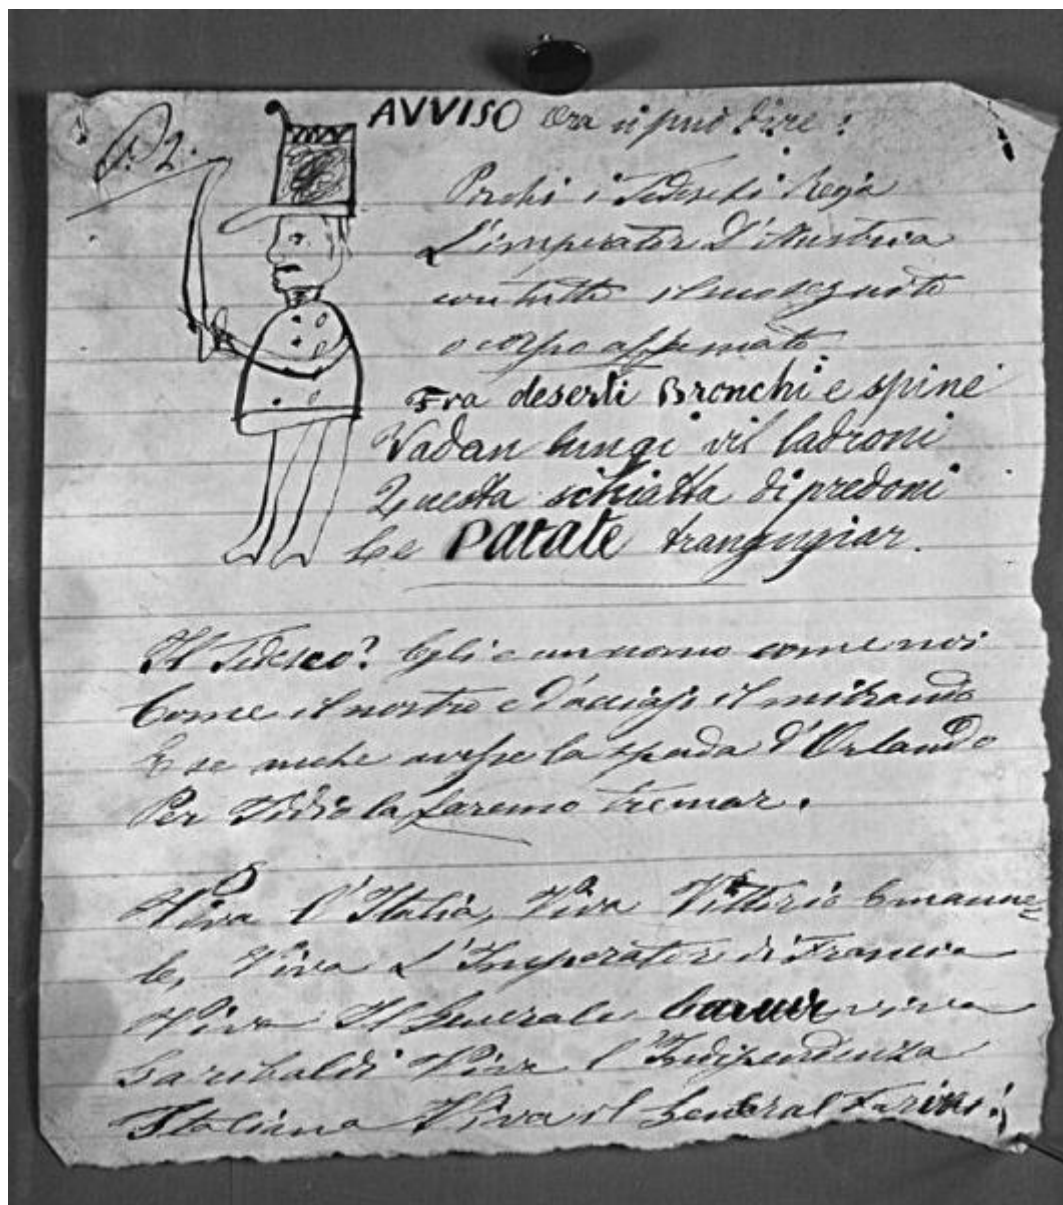 P. 2.
AVVISO Ora si può dire:
Perchi i Tedeschi Regia
L'imperator D'Austria
con tutto il suo seguito
o corpo affamato
Fra deserti Bronchi e spine
Vadan lungi vil ladroni
Questa schiatta di predoni
Le PATATE trangugiar.
Il Tedesco? Egli e un uomo come noi
Come il nostro e d'acciajo il suo brando
E se anche avesse la spada d'Orlando
Per Iddio la faremo tremar.
Viva l'Italia, Viva Vittorio Emanue=
le, Viva L'Imperator di Francia
Viva Il Generale viva
Garibaldi Viva l'Indipendenza
Italiana Viva il General Farini!